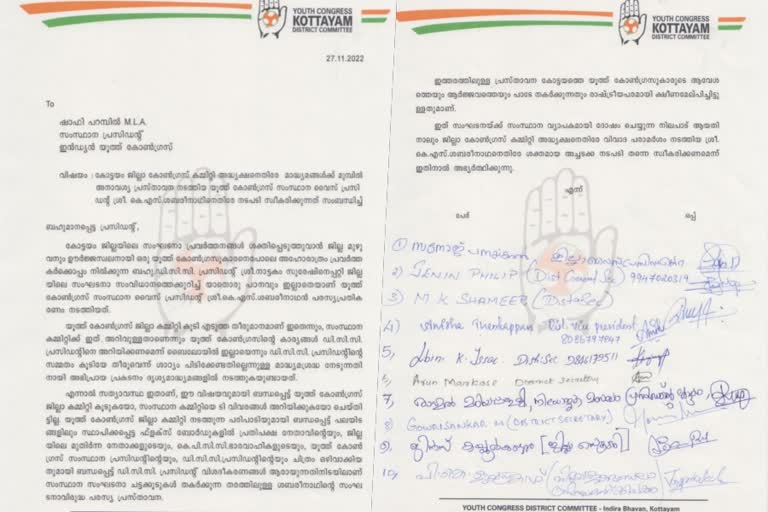 YOUTH CONGRESS
KOTTAYAM
DISTRICT COMMITTEE
27.11.2022
To
ഷാഫി പറമ്പിൽ M.L.A.
സംസ്ഥാന പ്രസിഡന്റ്
ഇൻഡ്യൻ യൂത്ത് കോൺഗ്രസ്
വിഷയം : കോട്ടയം ജില്ലാ കോൺഗ്രസ് കമ്മിറ്റി അദ്ധ്യക്ഷനെതിരേ മാദ്ധ്യമങ്ങൾക്ക് മുമ്പിൽ
അനാവശ്യ പ്രസ്താവന നടത്തിയ യൂത്ത് കോൺഗ്രസ് സംസ്ഥാന വൈസ് പ്രസി
ഡന്റ് ശ്രീ. കെ.എസ്.ശബരീനാഥനെതിരേ നടപടി സ്വീകരിക്കുന്നത് സംബന്ധിച്ച്
ബഹുമാനപ്പെട്ട പ്രസിഡന്റ്,
കോട്ടയം ജില്ലയിലെ സംഘടനാ പ്രവർത്തനങ്ങൾ ശക്തിപ്പെടുത്തുവാൻ ജില്ല മുഴു
വനും ഊർജ്ജസ്വലനായി ഒരു യൂത്ത് കോൺഗ്രസുകാരനെപോലെ അഹോരാത്രം പ്രവർത്ത
കർക്കൊപ്പം നിൽക്കുന്ന ബഹു.ഡി.സി.സി. പ്രസിഡന്റ് ശ്രീ.നാട്ടകം സുരേഷിനെപ്പറ്റി ജില്ല
യിലെ സംഘടനാ സംവിധാനത്തെക്കുറിച്ച് യാതൊരു ധാനവും ഇല്ലാതെയാണ് യൂത്ത്
കോൺഗ്രസ് സംസ്ഥാന വൈസ് പ്രസിഡന്റ് ശ്രീ.കെ.എസ്.ശബരീനാഥൻ പരസ്യപ്രതിക
രണം നടത്തിയത്.
യൂത്ത് കോൺഗ്രസ് ജില്ലാ കമ്മിറ്റി കൂടി എടുത്ത തീരുമാനമാണ് ഇതെന്നും, സംസ്ഥാന
കമ്മിറ്റിക്ക് ഇത് അറിവുള്ളതാണെന്നും യൂത്ത് കോൺഗ്രസിന്റെ കാര്യങ്ങൾ ഡി.സി.സി.
പ്രസിഡന്റിനെ അറിയിക്കണമെന്ന് ബൈലോയിൽ ഇല്ലായെന്നും ഡി.സി.സി. പ്രസിഡന്റിന്റെ
സമ്മതം കൂടിയേ തീരുവെന്ന് ശാഠ്യം പിടിക്കേണ്ടതില്ലെന്നുള്ള മാദ്ധ്യമശ്രദ്ധ നേടുന്നതി
നായി അഭിപ്രായ പ്രകടനം ദൃശ്യമാദ്ധ്യമങ്ങളിൽ നടത്തുകയുണ്ടായത്.
എന്നാൽ സത്യാവസ്ഥ ഇതാണ്, ഈ വിഷയവുമായി ബന്ധപ്പെട്ട് യൂത്ത് കോൺഗ്രസ്
ജില്ലാ കമ്മിറ്റി കൂടുകയോ, സംസ്ഥാന കമ്മിറ്റിയെ ടി വിവരങ്ങൾ അറിയിക്കുകയോ ചെയ്തി
ട്ടില്ല. യൂത്ത് കോൺഗ്രസ് ജില്ലാ കമ്മിറ്റി നടത്തുന്ന പരിപാടിയുമായി ബന്ധപ്പെട്ട് പലയിട
ങ്ങളിലും സ്ഥാപിക്കപ്പെട്ട ഫ്ളക്സ് ബോർഡുകളിൽ പ്രതിപക്ഷ നേതാവിന്റെയും, ജില്ല
യിലെ മുതിർന്ന നേതാക്കളുടെയും, കെ.പി.സി.സി.ഭാരവാഹികളുടെയും, യൂത്ത് കോൺ
ഗ്രസ് സംസ്ഥാന പ്രസിഡന്റിന്റെയും, ഡി.സി.സി.പ്രസിഡന്റിന്റെയും ചിത്രം ഒഴിവാക്കിയ
നുമായി ബന്ധപ്പെട്ട് ഡി.സി.സി. പ്രസിഡന്റ് വിശദീകരണങ്ങൾ ആരായുന്നതിനിടയിലാണ്
സംസ്ഥാന സംഘടനാ ചട്ടക്കൂടുകൾ തകർക്കുന്ന തരത്തിലുള്ള ശബരീനാഥന്റെ സംഘ
ടനാവിരുദ്ധ പരസ്യ പ്രസ്താവന.
YOUTH CONGRESS
KOTTAYAM
DISTRICT COMMITTEE
ഇത്തരത്തിലുള്ള പ്രസ്താവന കോട്ടയത്തെ യൂത്ത് കോൺഗ്രസുകാരുടെ ആവേശ
ത്തെയും ആർജ്ജവത്തെയും പാടേ തകർക്കുന്നതും രാഷ്ട്രീയപരമായി ക്ഷീണമേല്പിച്ചിട്ടു
ള്ളതുമാണ്.
ഇത് സംഘടനയ്ക്ക് സംസ്ഥാന വ്യാപകമായി ദോഷം ചെയ്യുന്ന നിലപാട് ആയതി
നാലും ജില്ലാ കോൺഗ്രസ് കമ്മിറ്റി അദ്ധ്യക്ഷനെതിരേ വിവാദ പരാമർശം നടത്തിയ ശ്രീ.
കെ.എസ്.ശബരീനാഥനെതിരേ ശക്തമായ അച്ചടക്ക നടപടി തന്നെ സ്വീകരിക്കണമെന്ന്
ഇതിനാൽ അഭ്യർത്ഥിക്കുന്നു.
എന്ന്
പേര് ഒപ്പ്
2) JENIN PHILIP (Dist General Sec) 9947020319
3) M K SHAMEER (Dist Sec)
4) Thankappan Dist. Vice president
5, K. Isac. Dist. Sec
6, Arun Markose District secretary
8) GOWRISANKAR M (DISTRICT SECRETARY)
YOUTH CONGRESS DISTRICT COMMITTEE - Indira Bhavan, Kottayam